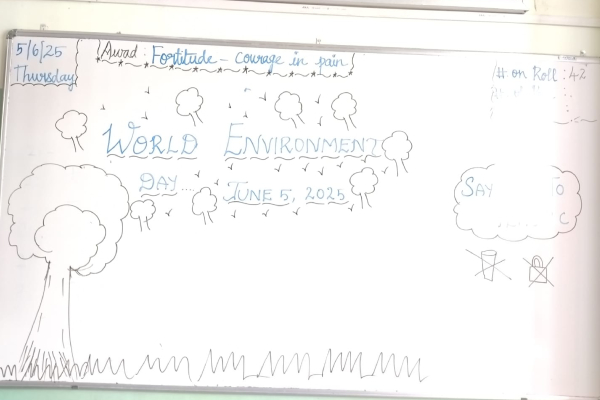 5/6/25
Thursday
Award : Fortitude - Courage in pain
# on Roll : 42
WORLD ENVIRONMENT
DAY... JUNE 5, 2025
SAY TO
C